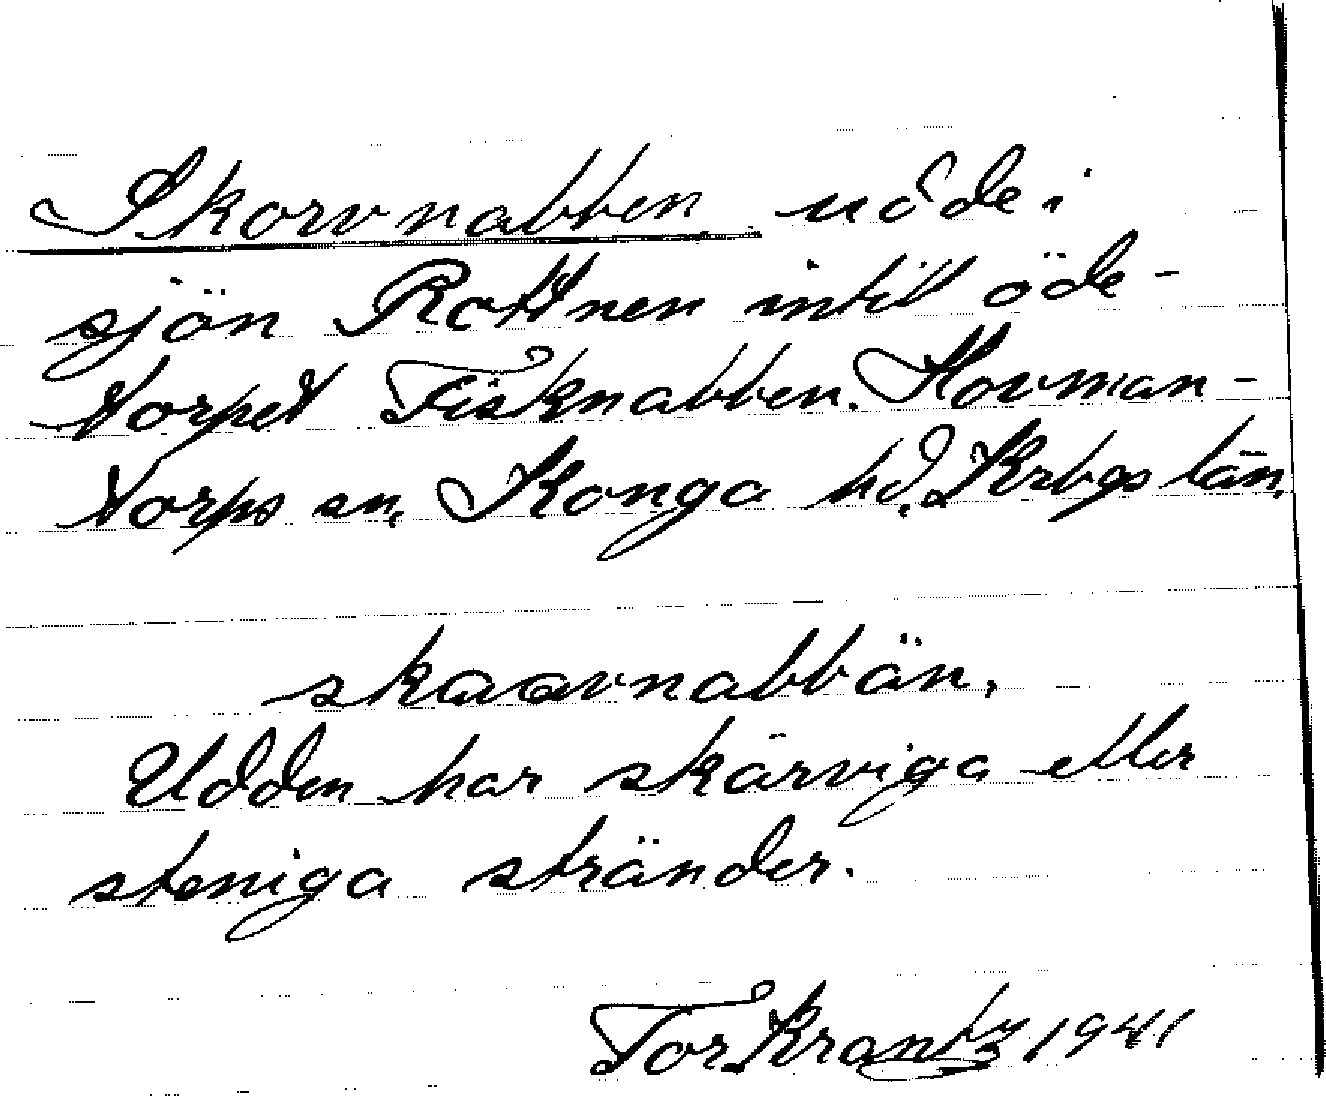 Skorvnabben udde i
sjön Rottnen intill öde-
torpet Fisknabben. Hovman-
torps sn, Konga hd. Krbgs län.
skaavnabbän.
Udden har skärviga eller
steniga stränder.
Tor Krantz 1941